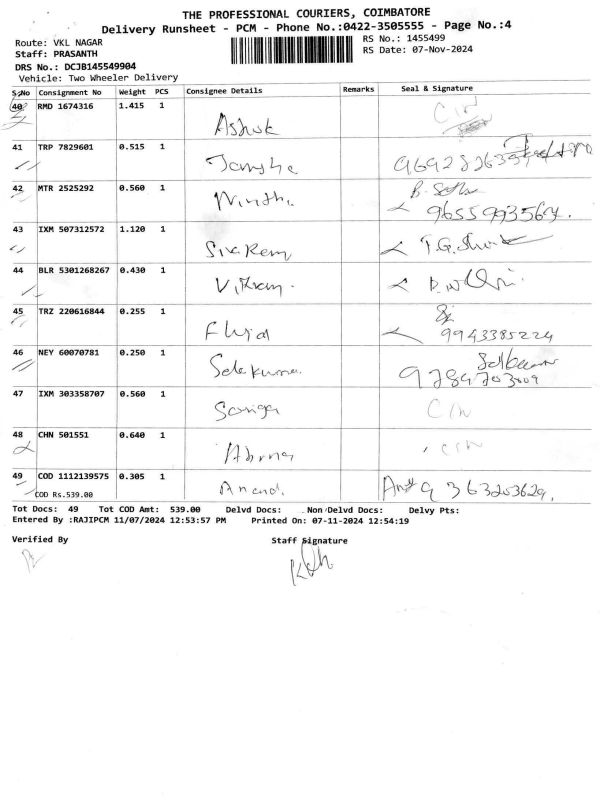 THE PROFESSIONAL COURIERS, COIMBATORE
Delivery Runsheet - PCM - Phone No.:0422-3505555 - Page No.:4
Route: VKL NAGAR
RS No.: 1455499
Staff: PRASANTH
RS Date: 07-Nov-2024
DRS No.: DCJB145549904
Vehicle: Two Wheeler Delivery
S.No Consignment No Weight PCS Consignee Details Remarks Seal & Signature
40 RMD 1674316 1.415 1 Ashok C/N
41 TRP 7829601 0.515 1
42 MTR 2525292 0.560 1 9655993564
43 IXM 507312572 1.120 1 Siva Ram
44 BLR 5301268267 0.430 1 Vikram
45 TRZ 220616844 0.255 1 9943385224
46 NEY 60070781 0.250 1 Selvakumar 9789703009
47 IXM 303358707 0.560 1 C/N
48 CHN 501551 0.640 1 C/N
49 COD 1112139575 0.305 1 Anand 9363203629
COD Rs.539.00
Tot Docs: 49 Tot COD Amt: 539.00 Delvd Docs: Non Delvd Docs: Delvy Pts:
Entered By :RAJIPCM 11/07/2024 12:53:57 PM Printed On: 07-11-2024 12:54:19
Verified By Staff Signature